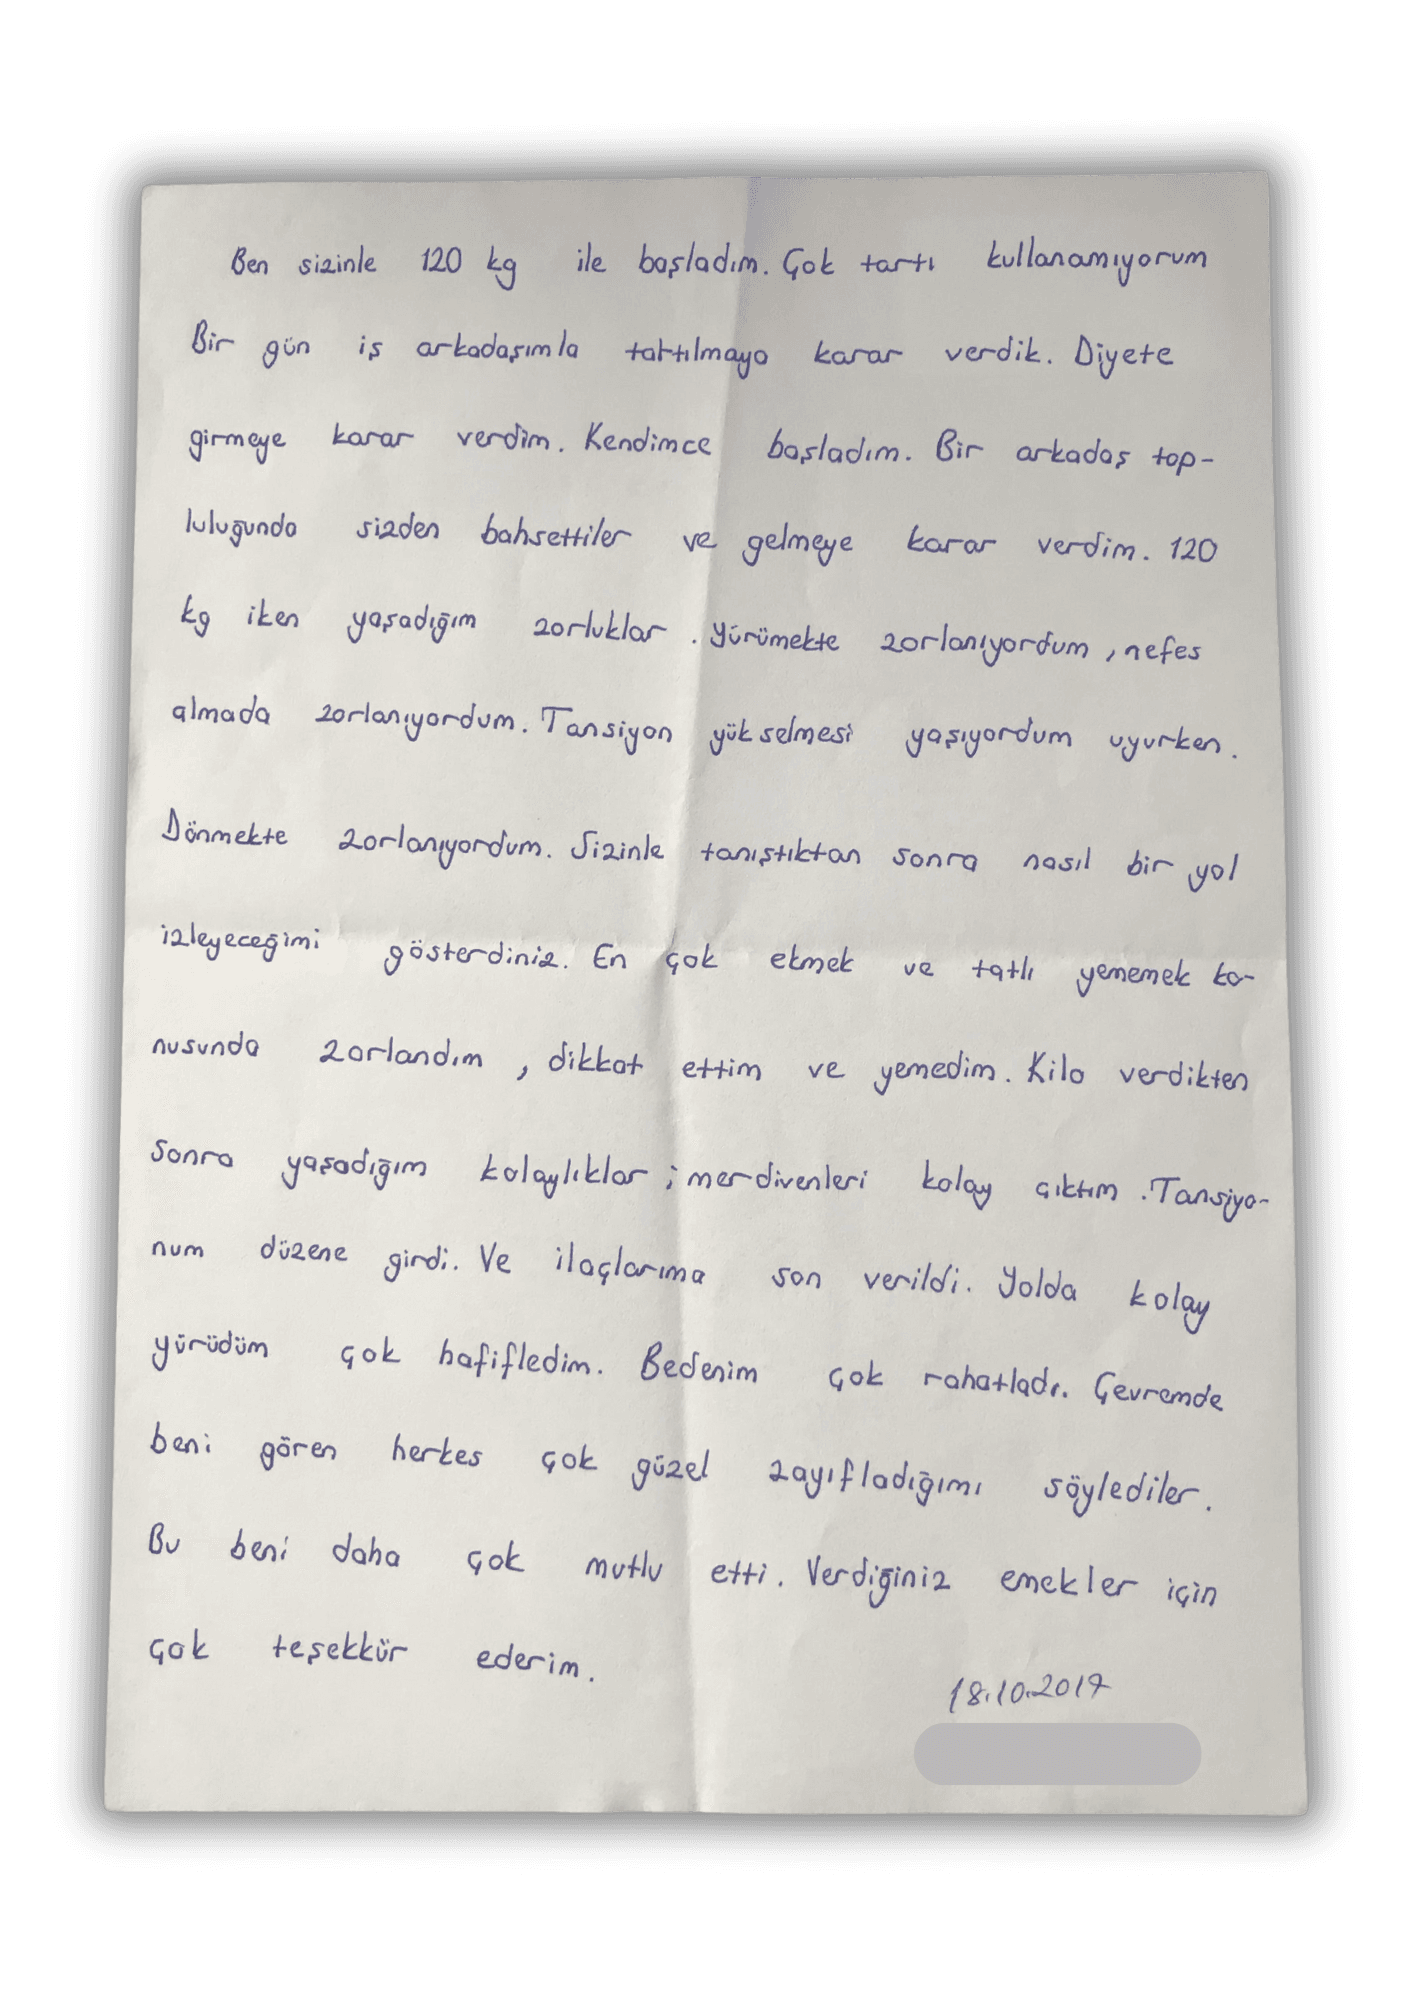 Ben sizinle 120 kg ile başladım. Çok tartı kullanamıyorum
Bir gün iş arkadaşımla tartılmaya karar verdik. Diyete
girmeye karar verdim. Kendimce başladım. Bir arkadaş top-
luluğunda sizden bahsettiler ve gelmeye karar verdim. 120
kg iken yaşadığım zorluklar. Yürümekte zorlanıyordum, nefes
almada zorlanıyordum. Tansiyon yükselmesi yaşıyordum uyurken.
Dönmekte zorlanıyordum. Sizinle tanıştıktan sonra nasıl bir yol
izleyeceğimi gösterdiniz. En çok ekmek ve tatlı yememek ko-
nusunda zorlandım, dikkat ettim ve yemedim. Kilo verdikten
sonra yaşadığım kolaylıklar; merdivenleri kolay çıktım. Tansiyo-
num düzene girdi. Ve ilaçlarıma son verildi. Yolda kolay
yürüdüm çok hafifledim. Bedenim çok rahatladı. Çevremde
beni gören herkes çok güzel zayıfladığımı söylediler.
Bu beni daha çok mutlu etti. Verdiğiniz emekler için
çok teşekkür ederim.
18.10.2017